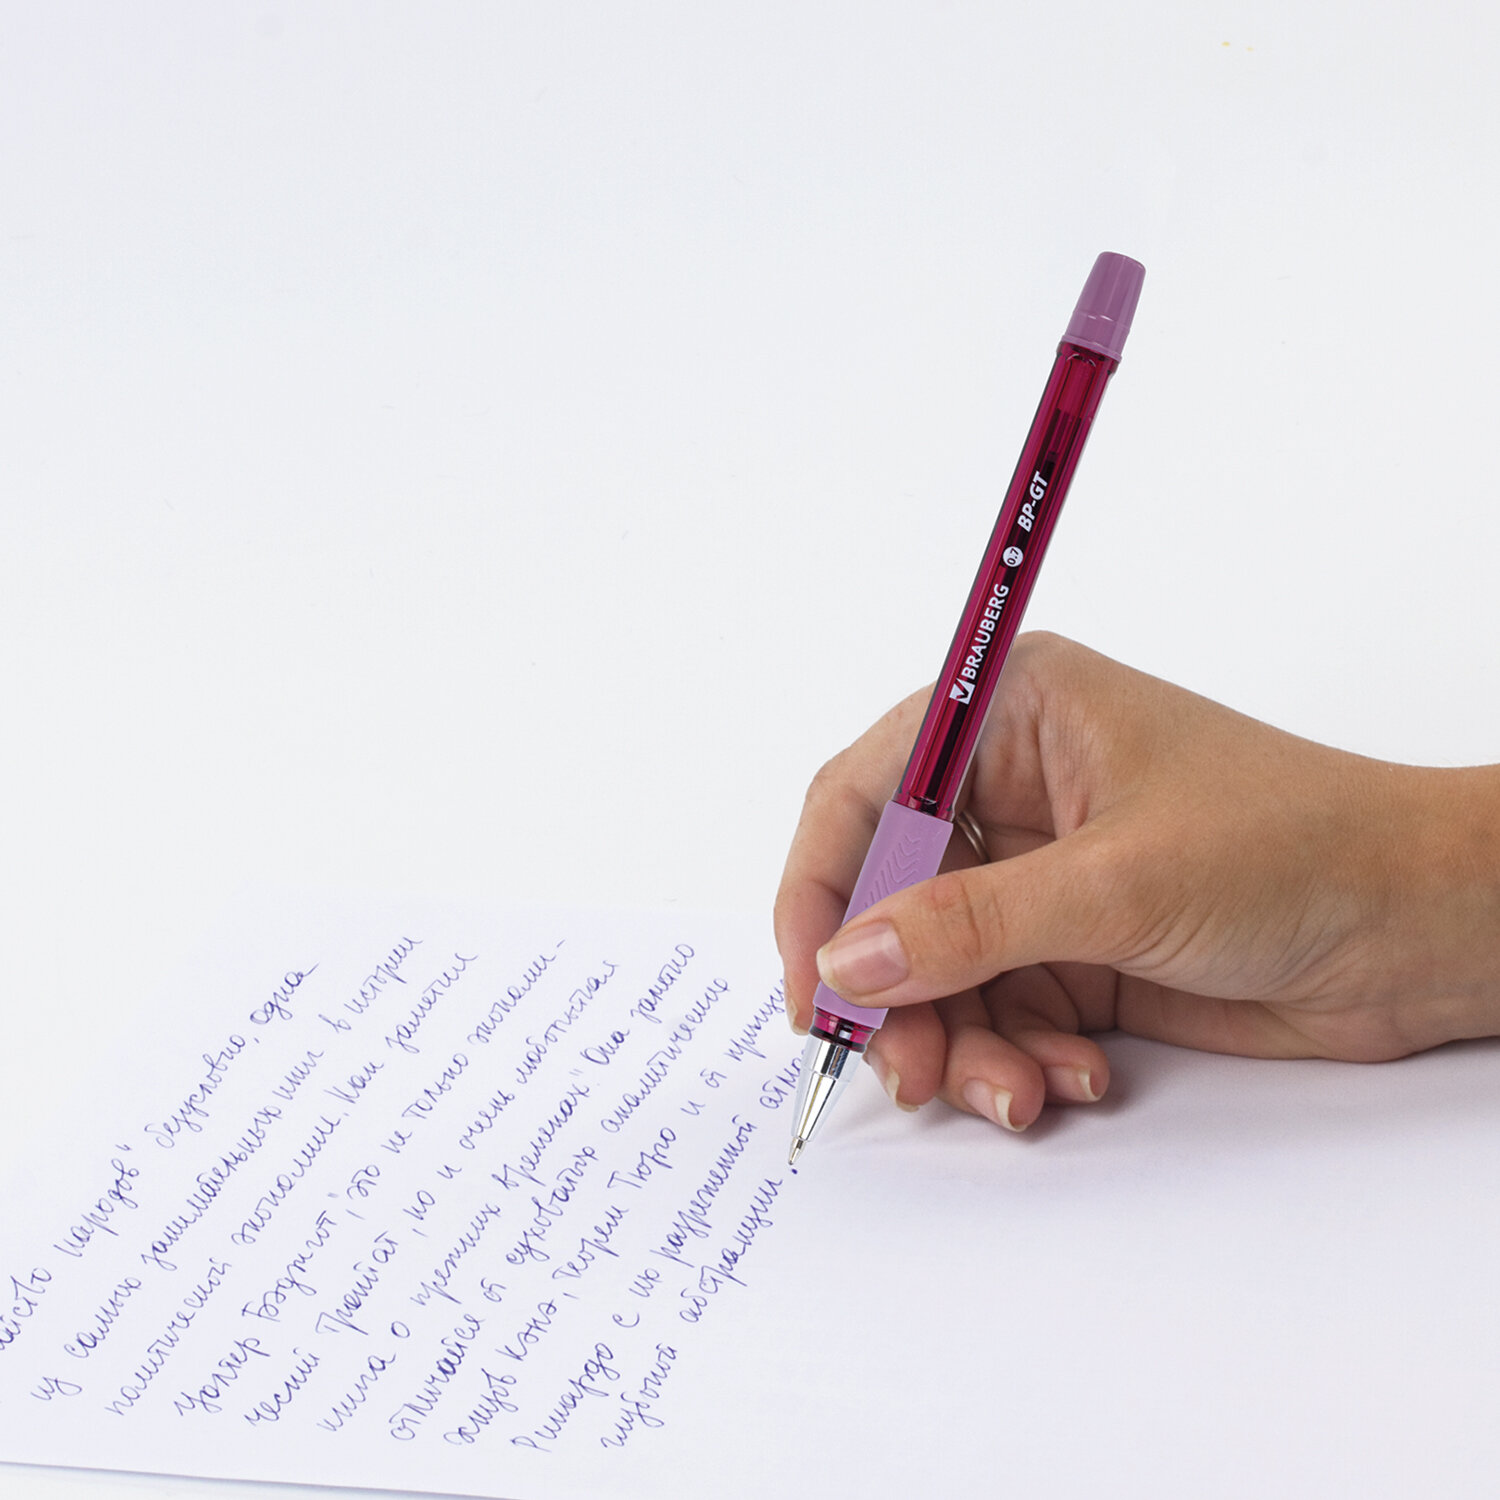 BRAUBERG 0.7 BP-GT
народов" безусловно, одна
из самых занимательных книг в истории
политической экономии. Как заметил
Уолтер Бэджгот, "это не только экономи-
ческий трактат, но и очень любопытная
книга о прежних временах". Она заметно
отличается от суховатых аналитических
Кэнэ, теорем Тюрго и от принци
Рикардо с их разреженной атмо
глубокой абстракции.